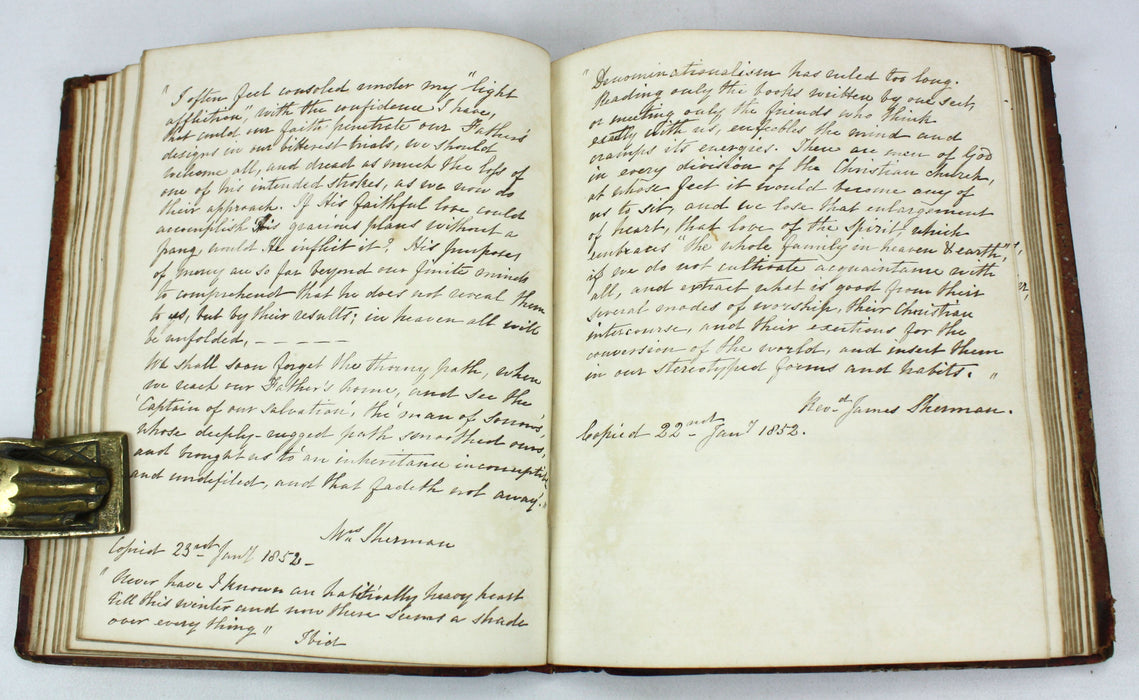 "I often feel consoled under my "light
affliction", with the confidence I have,
that could our faith penetrate our Father's
designs in our bitterest trials, we should
welcome all, and dread as much the loss of
one of his intended strokes, as we now do
their approach. If His faithful love could
accomplish His gracious plans without a
pang, would He inflict it? His purposes
of mercy are so far beyond our finite minds
to comprehend that he does not reveal them
to us, but by their results; in heaven all will
be unfolded, – – – – –
We shall soon forget the thorny path, when
we reach our Father's home, and see the
'Captain of our salvation', the 'man of sorrows',
whose deeply-rugged path smoothed ours,
and brought us to 'an inheritance incorruptible
and undefiled, and that fadeth not away'."
Mrs Sherman
Copied 23rd Jany 1852–
"Never have I known an habitually heavy heart
till this winter and now there seems a shade
over every thing" Ibid
"Denominationalism has ruled too long.
Reading only the books written by one sect,
or meeting only the friends who think
exactly with us, enfeebles the mind and
cramps its energies. There are men of God
in every division of the Christian church,
at whose feet it would become any of
us to sit, and we lose that enlargement
of heart, that love of the Spirit which
embraces "the whole family in heaven & earth",
if we do not cultivate acquaintance with
all, and extract what is good from their
several modes of worship, their Christian
intercourse, and their exertions for the
conversion of the world, and insert them
in our stereotyped forms and habits."
Revd James Sherman.
Copied 22nd Jany 1852.